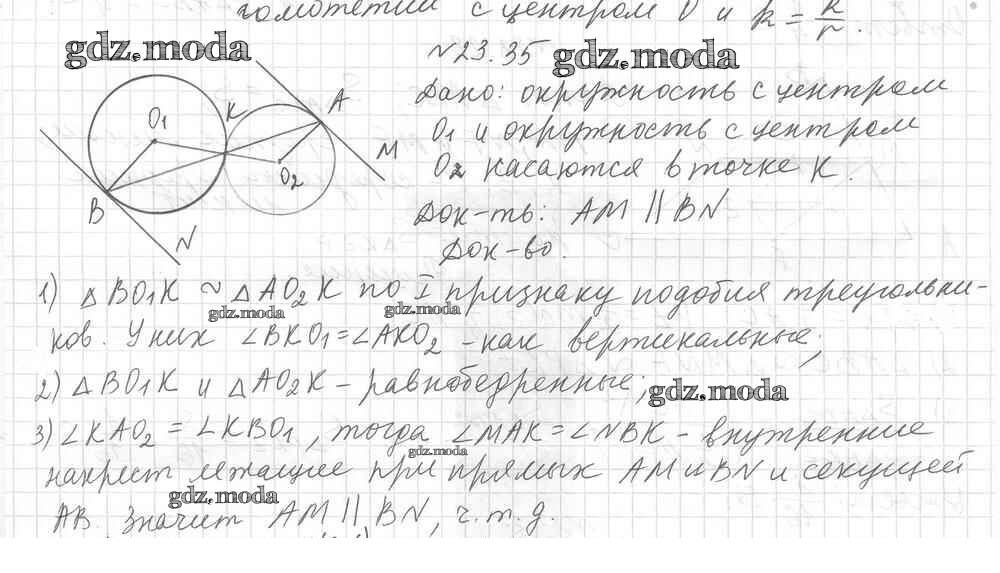 гомотетии с центром O и k = R/r.
gdz.moda
№23.35 gdz.moda
Дано: окружность с центром
O₁ и окружность с центром
O₂ касаются в точке K.
Док-ть: AM || BN
Док-во.
O₁ K A
O₂ M
B N
1) △BO₁K ~ △AO₂K по I признаку подобия треугольни-
gdz.moda gdz.moda
ков. У них ∠BKO₁=∠AKO₂ - как вертикальные;
2) △BO₁K и △AO₂K - равнобедренные; gdz.moda
3) ∠KAO₂ = ∠KBO₁, тогда ∠MAK = ∠NBK - внутренние
gdz.moda
накрест лежащие при прямых AM и BN и секущей
gdz.moda
AB. Значит AM || BN, ч.т.д.